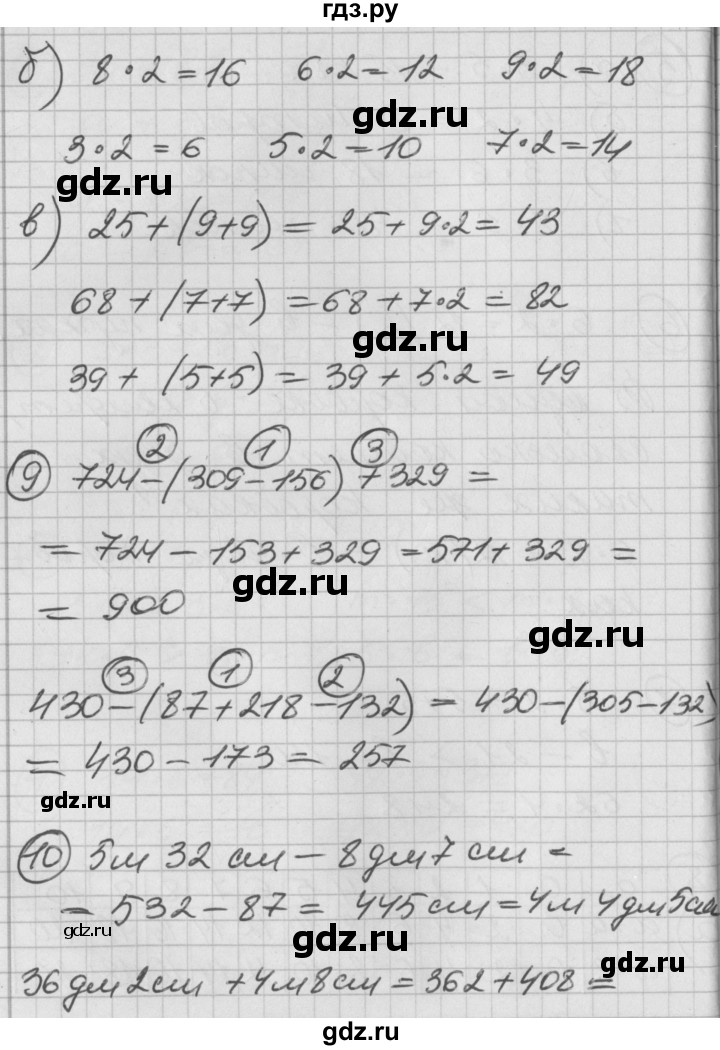 гдз.ру
б) 8·2=16 6·2=12 9·2=18
gdz.ru
3·2=6 5·2=10 7·2=14
gdz.ru
в) 25+(9+9)=25+9·2=43
68+(7+7)=68+7·2=82
gdz.ru
39+(5+5)=39+5·2=49
2 1 3
9 724-(309-156)+329=
=724-153+329=571+329=
gdz.ru
=900
gdz.ru
3 1 2
430-(87+218-132)=430-(305-132)
=430-173=257
gdz.ru
10 5м 32 см - 8 дм 7 см =
=532-87=445 см=4м 4дм 5см
gdz.ru
36 дм 2 см + 4м 8см=362+408=
gdz.ru
gdz.ru